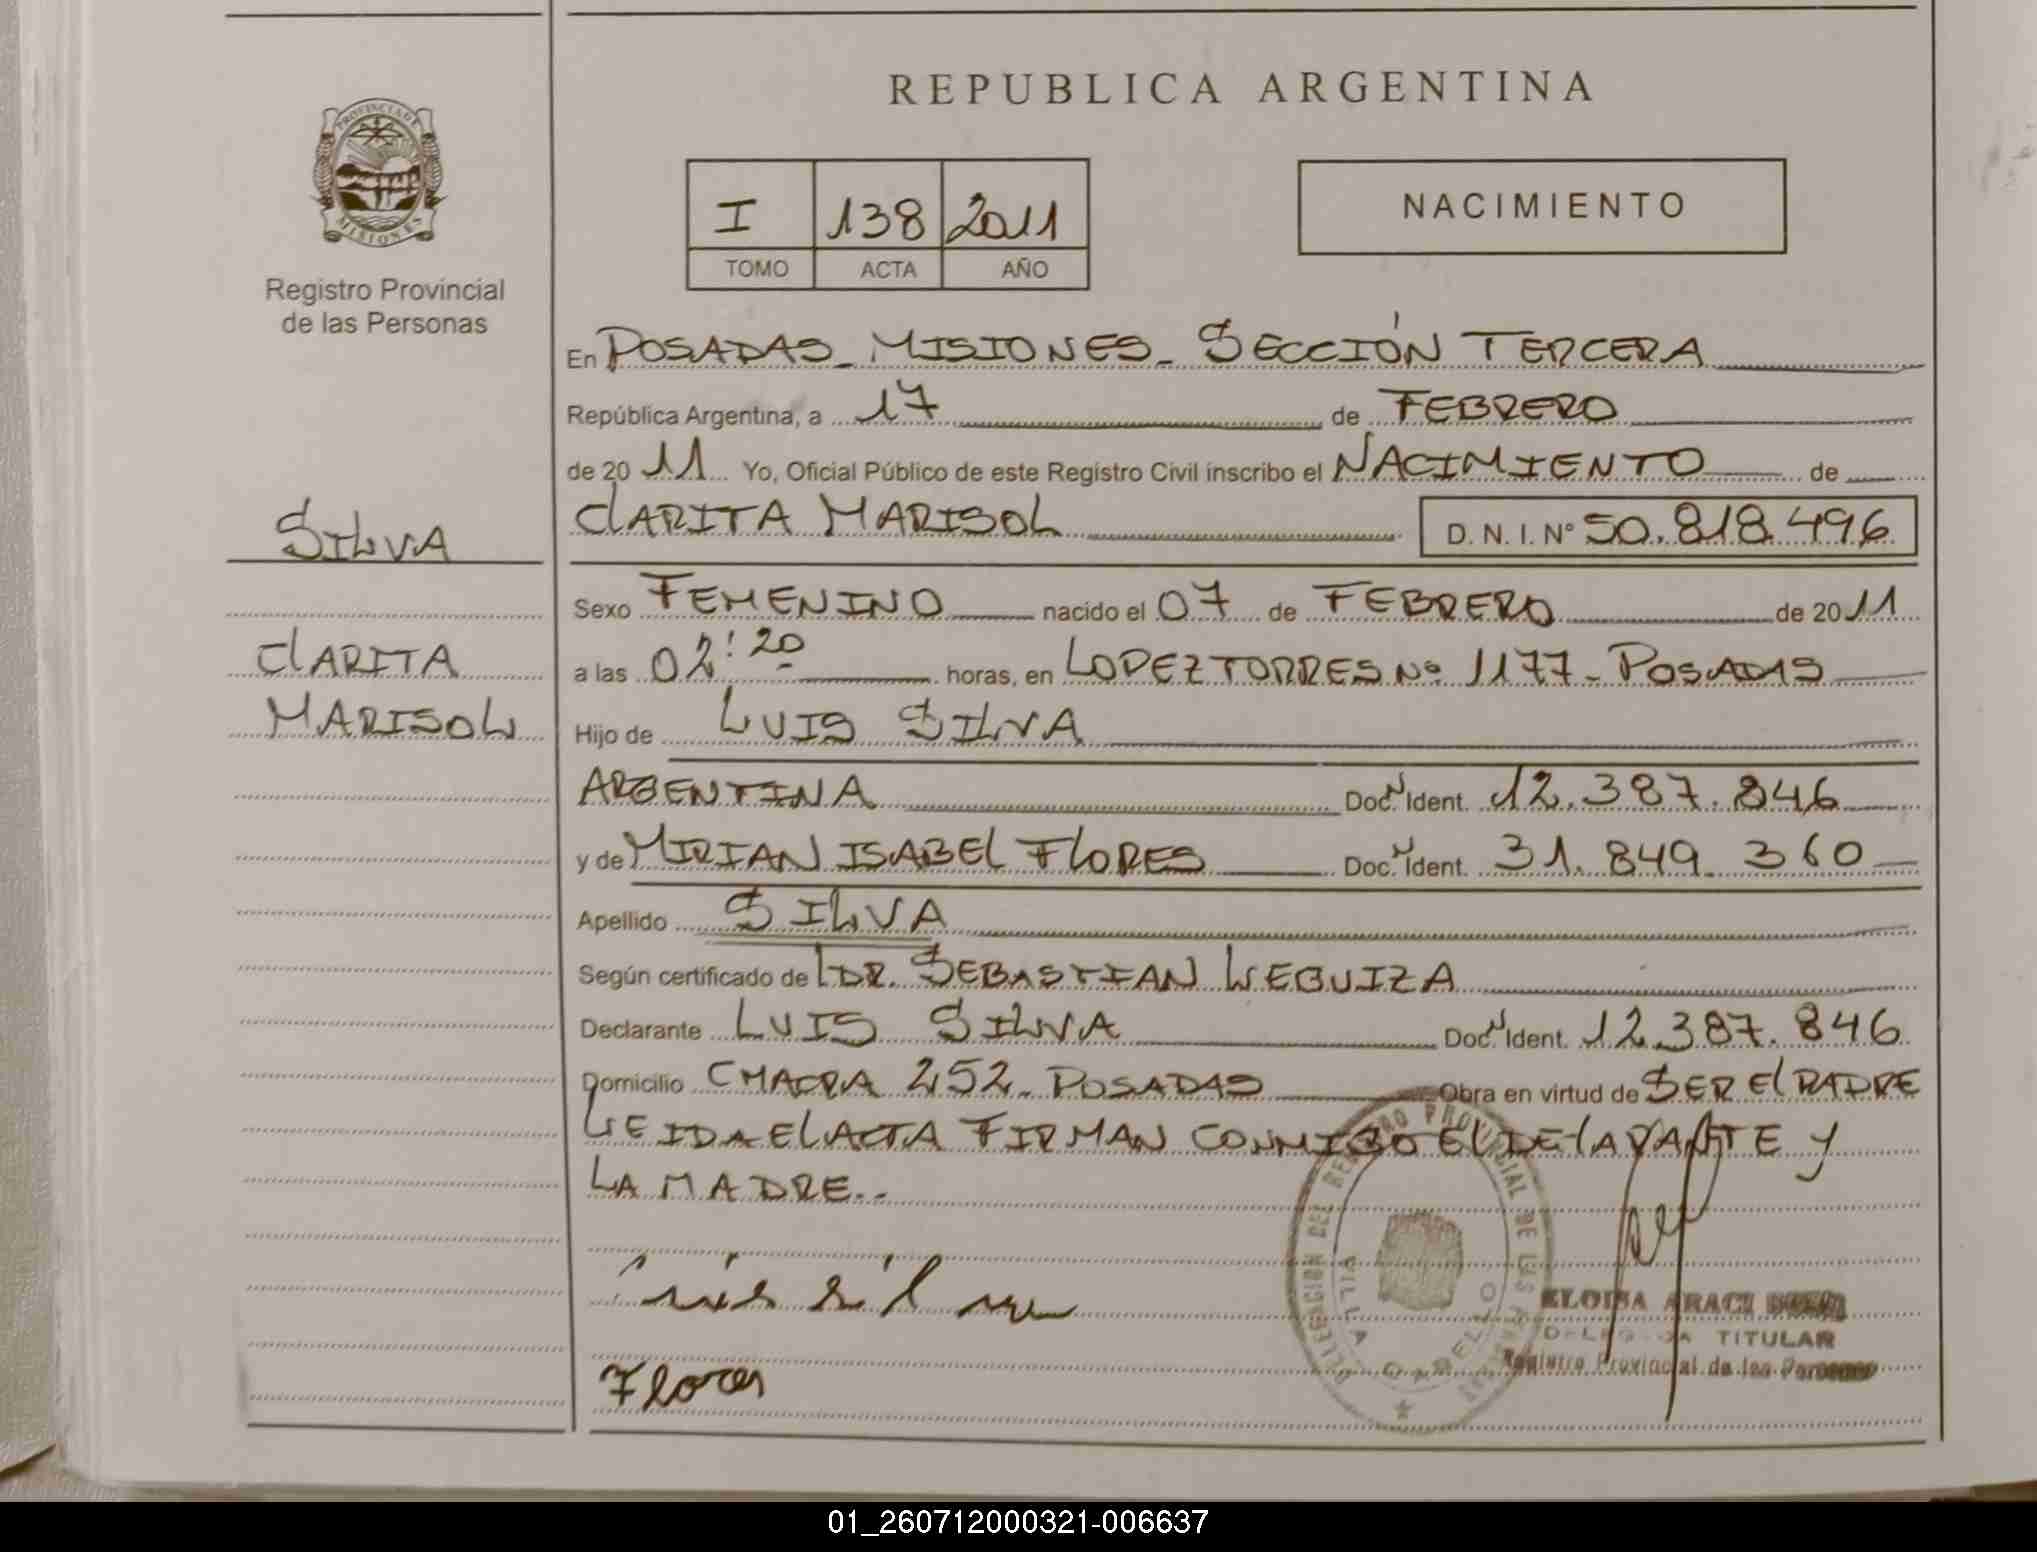 REPUBLICA ARGENTINA
PROVINCIA DE
MISIONES
Registro Provincial
de las Personas
I 138 2011
TOMO ACTA AÑO
NACIMIENTO
En POSADAS_MISIONES_SECCIÓN TERCERA
República Argentina, a 17 de FEBRERO
de 2011 Yo, Oficial Público de este Registro Civil inscribo el NACIMIENTO de
SILVA
CLARITA MARISOL D. N. I. Nº 50.818.496
Sexo FEMENINO nacido el 07 de FEBRERO de 2011
CLARITA
MARISOL
a las 02:20 horas, en LOPEZ TORRES Nº 1177_POSADAS
Hijo de LUIS SILVA
ARGENTINA Doc. Ident. 12.387.846
y de MIRIAN ISABEL FLORES Doc. Ident. 31.849.360
Apellido SILVA
Según certificado de DR. SEBASTIAN LEGUIZA
Declarante LUIS SILVA Doc. Ident. 12.387.846
Domicilio CHACRA 252_POSADAS Obra en virtud de SER EL PADRE
LEIDA EL ACTA FIRMAN CONMIGO EL DELARANTE Y
LA MADRE..
luis silva
Flores
DELEGACION DEL REGISTRO PROVINCIAL DE LAS
VILLA CABELLO
ELOISA ARACI
TITULAR
Registro Provincial de las Personas
01_260712000321-006637